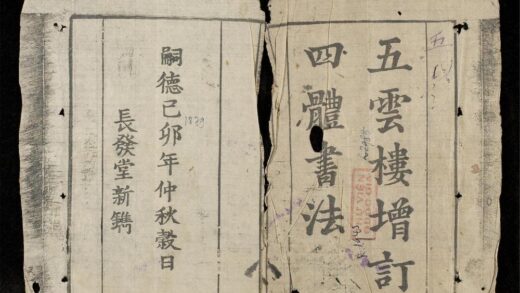 五雲樓增訂
四體書法
嗣德己卯年仲秋穀日
長發堂新鐫
1879